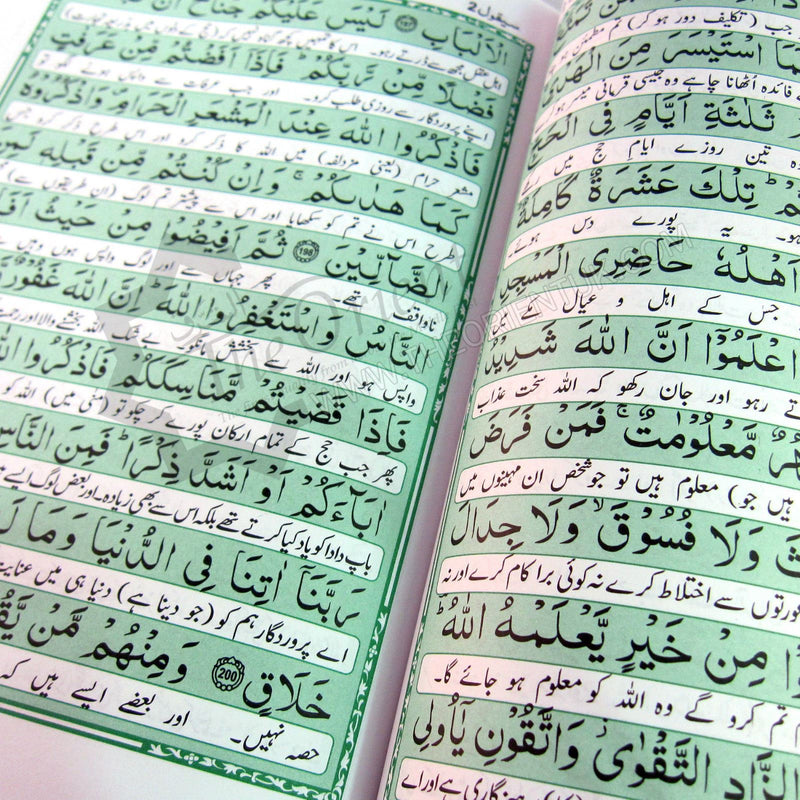 جب (تکلیف دور ہو کر) تم مطمئن
اسْتَيْسَرَ مِنَ الْهَدْيِ
فائدہ اُٹھانا چاہے وہ جیسی قربانی میسر ہو
ثَلٰثَةِ اَيَّامٍ فِي الْحَجِّ
تین روزے ایام حج میں رکھے
تِلْكَ عَشَرَةٌ كَامِلَةٌ
یہ پورے دس ہوئے۔
اَهْلُهٗ حَاضِرِي الْمَسْجِدِ
جس کے اہل و عیال مکے میں
اعْلَمُوْٓا اَنَّ اللّٰهَ شَدِيْدُ
رہو اور جان رکھو کہ اللہ سخت عذاب
مَّعْلُوْمٰتٌ ۚ فَمَنْ فَرَضَ
ہیں جو) معلوم ہیں تو جو شخص ان مہینوں میں
وَلَا فُسُوْقَ ۙ وَلَا جِدَالَ
عورتوں سے اختلاط کرے نہ کوئی برا کام کرے اور نہ
مِنْ خَيْرٍ يَّعْلَمْهُ اللّٰهُ ؕ
تم کرو گے وہ اللہ کو معلوم ہو جائے گا۔
الزَّادِ التَّقْوٰى ۫ وَاتَّقُوْنِ يٰٓاُولِي
پرہیزگاری ہے اور اے
سيقول 2
الْاَلْبَابِ 197 لَيْسَ عَلَيْكُمْ جُنَاحٌ اَنْ
اہل عقل مجھ سے ڈرتے رہو۔ اس کا تمہیں کچھ گناہ نہیں کہ
فَضْلًا مِّنْ رَّبِّكُمْ ؕ فَاِذَآ اَفَضْتُمْ مِّنْ عَرَفٰتٍ
اپنے پروردگار سے روزی طلب کرو۔ اور جب عرفات سے واپس ہونے لگو تو
فَاذْكُرُوا اللّٰهَ عِنْدَ الْمَشْعَرِ الْحَرَامِ وَاذْكُرُوْهُ
مشعر حرام (یعنی مزدلفہ) میں اللہ کا ذکر کرو اور اس طرح ذکر کرو جس
كَمَا هَدٰىكُمْ ۚ وَاِنْ كُنْتُمْ مِّنْ قَبْلِهٖ لَمِنَ
طرح اس نے تم کو سکھایا اور اس سے پیشتر تم لوگ (ان طریقوں سے)
الضَّآلِّيْنَ 198 ثُمَّ اَفِيْضُوْا مِنْ حَيْثُ
ناواقف تھے۔ پھر جہاں سے اور لوگ واپس ہوں وہیں سے
النَّاسُ وَاسْتَغْفِرُوا اللّٰهَ ؕ اِنَّ اللّٰهَ غَفُوْرٌ
واپس ہو اور اللہ سے بخشش مانگو بے شک اللہ بخشنے والا اور رحمت
فَاِذَا قَضَيْتُمْ مَّنَاسِكَكُمْ فَاذْكُرُوا اللّٰهَ
پھر جب حج کے تمام ارکان پورے کر چکو تو (منیٰ میں) اللہ کو
اٰبَآءَكُمْ اَوْ اَشَدَّ ذِكْرًا ؕ فَمِنَ النَّاسِ
باپ دادا کو یاد کیا کرتے تھے بلکہ اس سے بھی زیادہ۔ اور بعض لوگ ایسے
رَبَّنَآ اٰتِنَا فِي الدُّنْيَا وَمَا لَهٗ
اے پروردگار ہم کو (جو دینا ہے) دنیا ہی میں عنایت
خَلَاقٍ 200 وَمِنْهُمْ مَّنْ
حصہ نہیں۔ اور بعضے ایسے ہیں کہ